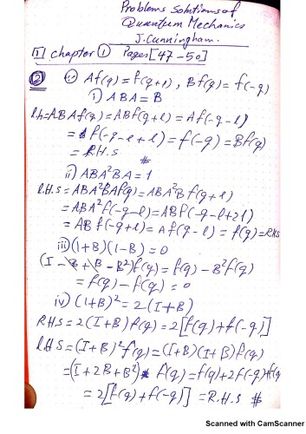 Problems Solutions of
Quantum Mechanics
J. Cunningham.
[1] Chapter ① Pages [47-50]
② Af(q)=f(q+l), Bf(q)=f(-q)
i) ABA=B
L.h.s=ABAf(q)=ABf(q+l)=Af(-q-l)
=f(-q-l+l)=f(-q)=Bf(q)
=R.H.S #
ii) ABA²BA=1
L.H.S=ABA²BAf(q)=ABA²Bf(q+l)
=ABA²f(-q-l)=ABf(-q-l+2l)
=ABf(-q+l)=Af(q-l)=f(q)=R.H.S
iii) (1+B)(1-B)=0
(I-B+B-B²)f(q)=f(q)-B²f(q)
=f(q)-f(q)=0
iv) (1+B)²=2(I+B)
R.H.S=2(I+B)f(q)=2[f(q)+f(-q)]
L.H.S=(I+B)²f(q)=(I+B)(I+B)f(q)
=(I+2B+B²)f(q)=f(q)+2f(-q)+f(q)
=2[f(q)+f(-q)]=R.H.S #
Scanned with CamScanner